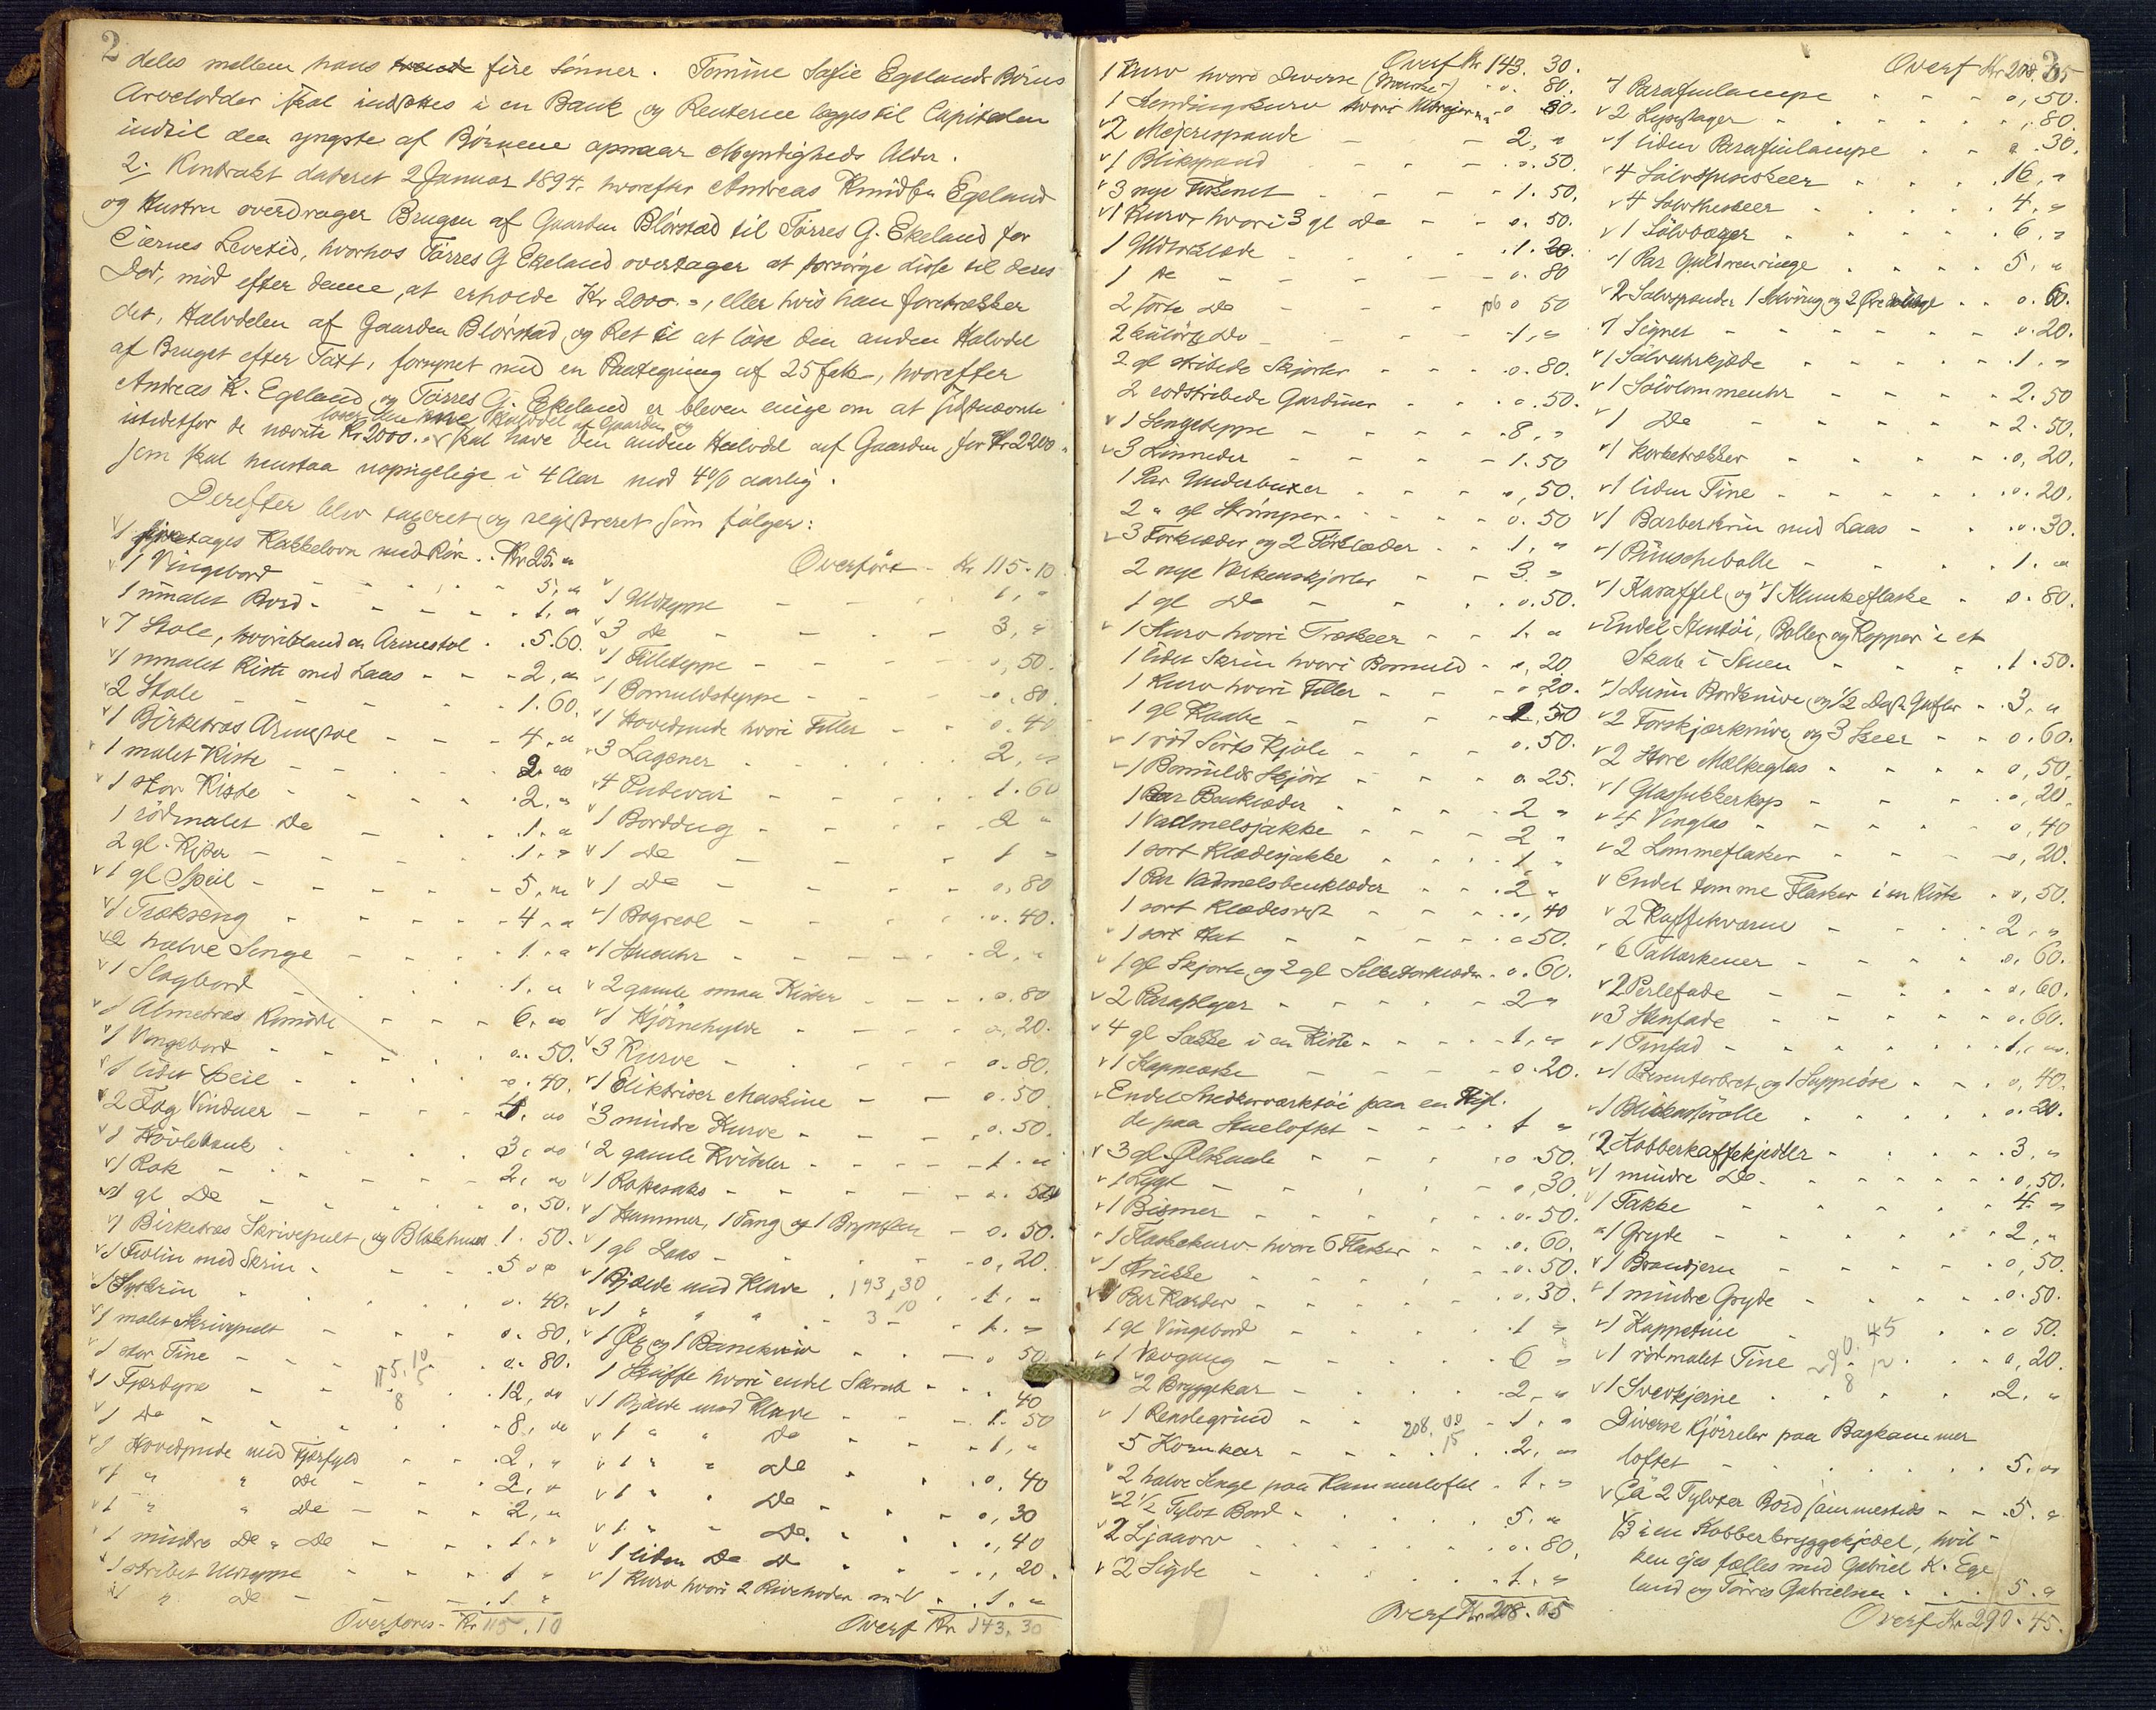 2
deles mellem hans fire Sønner. Tomine Sofie Egelands Børns
Arvelodder skal indsættes i en Bank og Renterne lægges til Capitalen
indtil den yngste af Børnene opnaar Myndigheds Alder.
2. Kontrakt dateret 2 Januar 1894, hvorefter Andreas Knudsen Egeland
og Hustru overdrager Brugen af Gaarden Bløstad til Tørres G. Ekeland for
Eiernes Levetid, hvorhos Tørres G Ekeland overtager at forsørge disse til deres
Død, mod efter denne, at erholde Kr 2000.-, eller hvis han foretrækker
det, Halvdelen af Gaarden Bløstad og Ret til at løse den anden Halvdel
af Bruget efter Taxt, forsynet med en Paategning af 25 f.M., hvorefter
Andreas K. Egeland og Tørres G. Ekeland er bleven enige om at sidstnævnte
istedetfor de nævnte Kr 2000.- skal have den anden Halvdel af Gaarden for Kr 2200 -
som skal henstaa uopsigelige i 4 Aar mod 4% aarlig.
Derefter blev taxeret og registreret som følger:
1 Kakkelovn med Rør.. Kr 25. "
1 Vingebord - - - 5, "
1 umalet Bord - - - 1, "
7 Stole, hvoriblandt en Armestol . 5.60.
1 umalet Kiste med Laas - - 2, "
2 Stole - - - 1.60.
1 Birketræs Armstol - - 4, "
1 malet Kiste - - - 2. "
1 stor Kiste - - - 2. "
1 rødmalet Do - - 1. "
2 gl. Kister - - - 1. "
1 gl Speil - - - 5, "
1 Trækseng - - - 4, "
2 halve Senge - - - 1. "
1 Slagbord - - - 1. "
1 Almetræs Komode - - 6, "
1 Vingebord - - - 0. 50.
1 lidet Speil - - - 0. 40.
2 Fag Vinduer - - - 4, "
1 Høvlebænk - - - 3, "
1 Rok - - - 2, "
1 gl Do - - - 0. 50.
1 Birketræs Skrivepult og Blækhuus 1. 50.
1 Fiolin med Skrin - - - 5 "
1 Syskrin - - - 0. 40.
1 malet Skrivepult - - 0. 80.
1 stor Tine - - - 0. 80.
1 Fjærdyne - - - 12, "
1 Do - - - 8, "
1 Hovedpude med Fjærfyld - - 2, "
1 " " Do - - 2, "
1 " " Do - - 2, "
1 mindre Do " Do - - 1. "
1 stribet Uldteppe - - 1 "
1 " Do - - 1 "
Overføres - Kr 115.10
115,10
8
Overført - Kr 115.10
1 Uldteppe - - 1, "
3 Do - - - 3, "
1 Filleteppe - - - 0, 50.
1 Bomuldsteppe - - 0. 80.
1 Hovedpude hvori Filler - - 0. 40
3 Lagener - - - 2, "
4 Pudevar - - - 1.60
1 Borddug - - - 2 "
1 Do - - - 1 "
1 Do - - - 0, 80
1 Bogreol - - - 0. 40.
1 Stueuhr - - - 2. "
2 gamle smaa Kister - - 0. 80
1 Hjørnehylde - - - 0, 20.
3 Kurve - - - 0. 80.
1 Eliktriser Maskine - - 0. 50.
3 mindre Kurve - - - 0. 50.
2 gamle Kvitler - - - 1. "
1 Rokesaks - - - 0. 50
1 Hammer, 1 Tang og 1 Brynsten - 0. 50.
1 gl Laas - - - 0, 20.
1 Bjælde med Klave - - 1. "
143,30
3 10
1 " " " - - 1. "
1 Øx og 1 Bandkniv - - 0 50
1 Skuffe hvori endel Skrab - - 40
1 Bjælde med Klave - - 1. 50
1 " " Do - - 1, "
1 " " Do - - 0, 40
1 " " Do - - 0, 30
1 " " Do. - - 0, 40
1 liden Do Do - - 0, 20.
1 Kurv hvori 2 Rivehoder m.V. - 1. "
Overf Kr 143.30
Overf Kr 143. 30.
1 Kurv hvori Diverse - 0. 80.
1 Sendingskurv hvori Uldvejer - 0 80.
2 Mejerispande - - 2, "
1 Blikspand - - - 0. 50.
3 nye Fiskenet - - - 1. 50.
1 Kurv hvori 3 gl Do - - 0. 50.
1 Uldtæklæde - - - 1. 20.
1 Do - - - 0. 80
2 sorte Do - - - 0 50
2 kulørt Do - - - 1, "
2 gl stribede Skjorter - - - 0. 80.
2 rødstribede Gardiner - - - 0. 50.
1 Sengeteppe - - - 8, "
3 Linneder - - - 1. 50
1 Par Underbuxer - - - 0, 50.
2 " gl Strømper - - - 0. 50
3 Forklæder og 2 Tørklæder - - 1, "
2 nye Værkenskjorter - - 3. "
1 gl Do - - - 0. 50.
1 Kurv hvori Træskeer - - 1. "
1 lidet Skrin hvori Bomuld - 0, 20
1 Kurv hvori Filler - - 0 20.
1 gl Kaabe - - - 1, 50
1 rød Sørts Kjole - - - 0. 50.
1 Bomulds Skjørt - - - 0. 25.
1 Par Benklæder - - - 2 "
1 Vadmelsjakke - - - 2 "
1 sort Klædesjakke - - - 1 "
1 Par Vadmelsbenklæder - - 2 "
1 sort Klædesvest - - - 0, 40
1 sort Hat - - - 0 50.
1 gl Skjorte og 2 gl Silketørklæder - 0. 60.
2 Paraplyer - - - 2 "
4 gl Sække i en Kiste - - - 1, "
1 Kappeæske - - - 0.20.
Endel Snedkerværktøi paa en
de paa Stueloftet - - - 1 "
3 gl. Ølskaale - - - 0 50.
1 Lygt - - - 0, 30.
1 Bismer - - - 0. 50.
1 Flaskekurv hvori 6 Flasker - - 0. 60.
1 Krukke - - - 0. 50.
1 Par Karder - - - 0. 30.
1 gl Vingebord - - - 1 "
1 Vævgang - - - 6 "
2 Bryggekar - - - 2, "
1 Renslegrind - - - 1. "
5 Kornkar - - - 2, "
208,00
15
2 halve Senge paa Kammerloftet - 1. "
2 1/2 Tylvt Bord - - - 5. "
2 Ljaaorv - - - 0. 80.
2 Sigde - - - 1. "
Overf Kr 208. 05
3
Overf Kr 208. 05
1 Parafinlampe - - - 0, 50.
2 Lysestager - - - , 80.
1 liden Parafinlampe - - 0. 30.
4 Sølvspiseskeer - - - 16, "
4 Sølvtheskeer - - - 4. "
1 Sølvbæger - - - 6, "
1 Par Guldørenringe - - - 5, "
2 Sølvspænder 1 Sølvring og 2 - - 0. 60.
1 Signet - - - 0. 20.
1 Sølvuhrkjæde - - - 1. "
1 Sølvlommeuhr - - - 2. 50
1 Do - - - 2. 50.
1 Korketrækker - - - 0, 20.
1 liden Tine - - - 0. 20.
1 Barberskrin med Laas - - 0. 30.
1 Punschebolle - - - 1. "
1 Karaffel og 1 Klunkeflaske - 0. 80.
Endel Stentøi, Boller og Kopper i et
Skab i Stuen - - - 1. 50.
1 Dusin Bordknive og 1/2 Ds. Gafler - 3, "
2 Forskjærknive og 3 Skeer - - 0. 60.
2 Store Mælkeglas - - - 0, 50.
1 Glassukkerkop - - - 0, 20.
4 Vinglas - - - 0, 40
2 Lommeflasker - - - 0, 20.
Endel tomme Flasker i en Kiste - 0, 50.
2 Kaffekværne - - - 2, "
6 Tallerkener - - - 0. 60.
2 Perlefade - - - 0, 60.
3 Stenfade - - - 0. 60.
1 Tinfad - - - 1, "
1 Presenterbret og 1 Suppeøse - - 0, 40.
1 - - - 0. 20.
2 Kobberkaffekjedler - - - 3. "
1 mindre Do - - - 0, 50.
1 Takke - - - 4. "
1 Gryde - - - 2, "
1 Brandjern - - - 0, 50.
1 mindre Gryde - - - 0. 50.
1 Kappetine - - - 0 50.
1 rødmalet Tine - - - 0, 20.
290.45
12
8
1 Sverkjerne - - - 2. "
Diverse Kjørreler paa Bagkammer
loftet - - - 5. "
Ca 2 Tylvter Bord sammesteds - - 5. "
1/3 i en Kobberbryggekjedel, hvil-
ken ejes fælles med Gabriel K. Ege
land og Tørres Gabrielsen - - - 5. "
Overf Kr 290. 45.